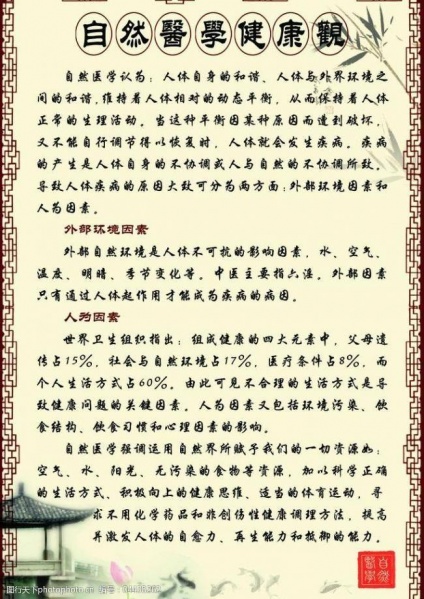 自然醫學健康觀
自然医学认为：人体自身的和谐、人体与外界环境之
间的和谐，维持着人体相对的动态平衡，从而保持着人体
正常的生理活动。当这种平衡因某种原因而遭到破坏，
又不能自行调节得以恢复时，人体就会发生疾病。疾病
的产生是人体自身的不协调或人与自然的不协调所致。
导致人体疾病的原因大致可分为两方面：外部环境因素和
人为因素。
外部环境因素
外部自然环境是人体不可抗的影响因素，水、空气、
温度、明暗、季节变化等。中医主要指六淫。外部因素
只有通过人体起作用才能成为疾病的病因。
人为因素
世界卫生组织指出：组成健康的四大元素中，父母遗
传占15%，社会与自然环境占17%，医疗条件占8%，而
个人生活方式占60%。由此可见不合理的生活方式是导
致健康问题的关键因素。人为因素又包括环境污染、饮
食结构、饮食习惯和心理因素的影响。
自然医学强调运用自然界所赋予我们的一切资源如：
空气、水、阳光、无污染的食物等资源，加以科学正确
的生活方式、积极向上的健康思维、适当的体育运动，寻
求不用化学药品和非创伤性健康调理方法，提高
并激发人体的自愈力、再生能力和抵御的能力。
自然
醫學
图行天下photophoto.cn